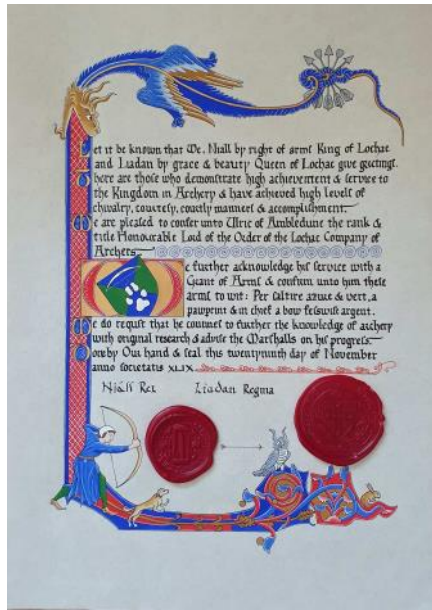 Let it be known that We, Niall by right of arms King of Lochac
and Liadan by grace & beauty Queen of Lochac give greetings.
There are those who demonstrate high achievement & service to
the Kingdom in Archery & have achieved high levels of
chivalry, courtesy, courtly manners & accomplishment.
We are pleased to confer unto Ulric of Ambledune the rank &
title Honourable Lord of the Order of the Lochac Company of
Archers.
We further acknowledge his service with a
Grant of Arms & confirm unto him these
arms to wit: Per saltire azure & vert, a
pawprint & in chief a bow fesswise argent.
We do requst that he contines to further the knowledge of archery
with original research & advise the Marshalls on his progress.
Done by Our hand & seal this twentyninth day of November
anno societatis XLIX
Niall Rex Liadan Regina